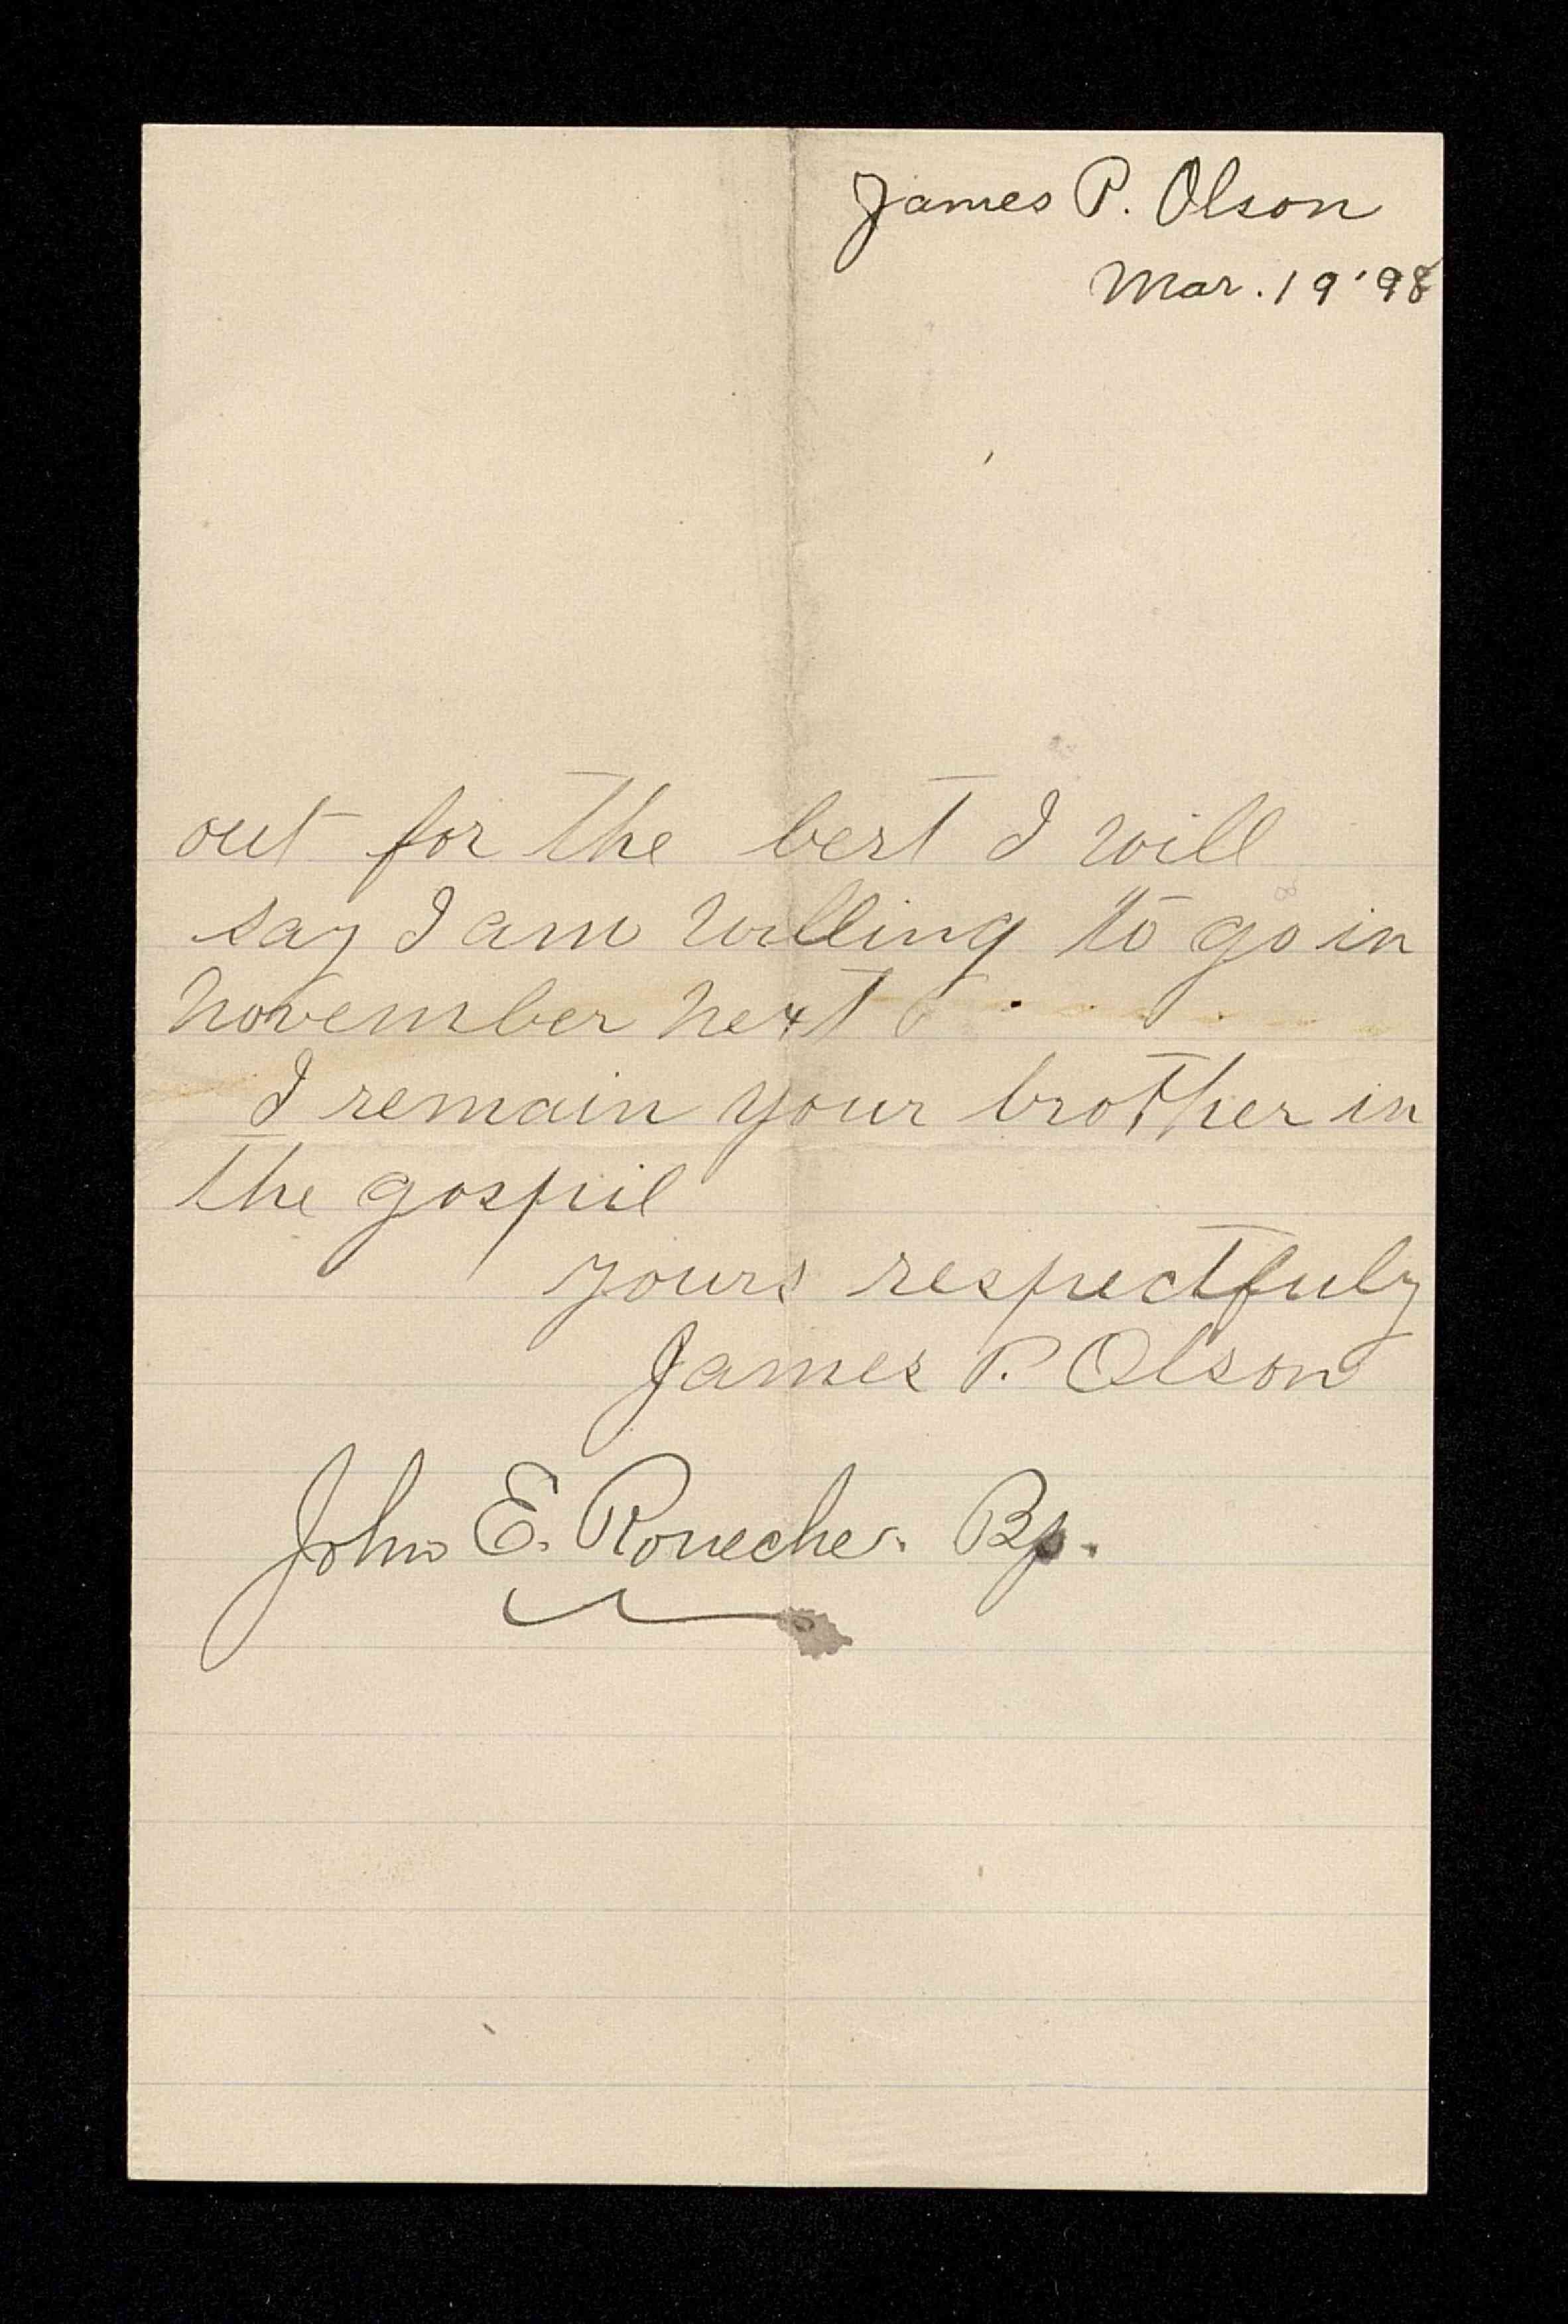 James P. Olson
Mar. 19 '98
out for the best I will
say I am willing to go in
November next
I remain your brother in
the gospil
yours respectfuly
James P. Olson
John E. Bp.